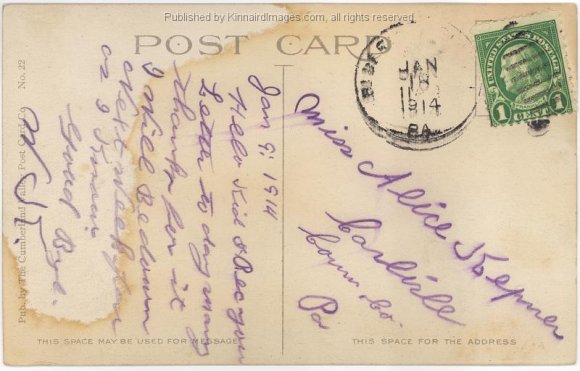 Published by KinnairdImages.com, all rights reserved.
POST CARD
JAN
1914
PA.
UNITED STATES POSTAGE
1 CENT 1
No. 22
Pub. by The Cumberland Valley Post Card Co.
Jan 9: 1914
Hello Kid I Rec your
Letter to day many
thanks for it
I Will Be down
Next week
as I Know
Good Bye.
Miss Alice Kepner
Pa
THIS SPACE MAY BE USED FOR MESSAGE
THIS SPACE FOR THE ADDRESS